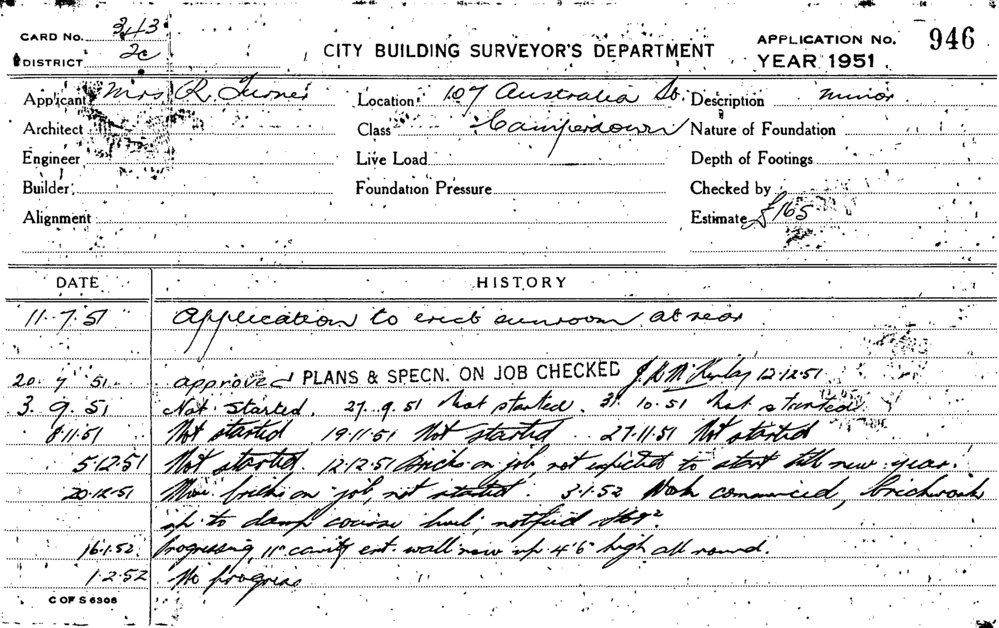 CARD No. 343
DISTRICT 2c
CITY BUILDING SURVEYOR'S DEPARTMENT
APPLICATION No. 946
YEAR 1951
Applicant Mrs R. Turner Location 107 Australia St. Description minor
Architect Class Camperdown Nature of Foundation
Engineer Live Load Depth of Footings
Builder Foundation Pressure Checked by
Alignment Estimate £165
DATE HISTORY
11.7.51 Application to erect sunroom at rear
20.7.51 approved PLANS & SPECN. ON JOB CHECKED 12.12.51
3.9.51 Not Started. 27.9.51 Not started. 31.10.51 Not started
8.11.51 Not started 19.11.51 Not started 27.11.51 Not started
5.12.51 Not started. 12.12.51 Bricks on job, not expected to start till new year.
20.12.51 More bricks on job, not started. 3.1.52 Work commenced, brickwork
up to damp course level, notified
16.1.52. Progressing, 11" cavity ext. wall now up 4'6" high all round.
1.2.52 No progress
C OF S 6306